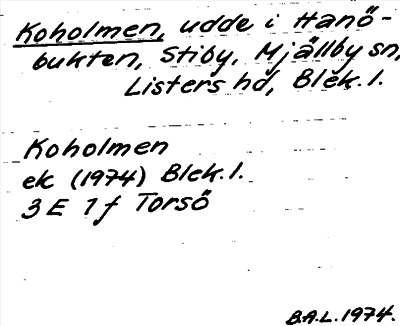 Koholmen, udde i Hanö-
bukten, Stiby, Mjällby sn,
Listers hd, Blek. l.
Koholmen
ek (1974) Blek. l.
3 E 1 f Torsö
B.A.L. 1974.